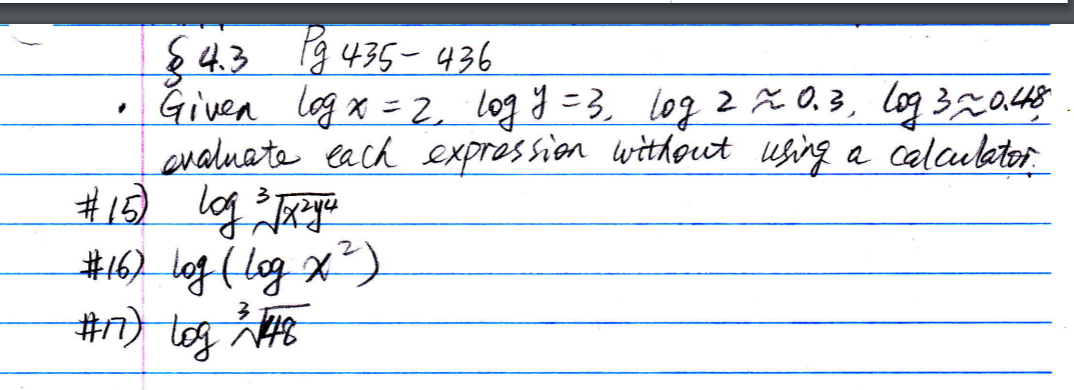 § 4.3 Pg 435-436
• Given log x = 2, log y = 3, log 2 ≈ 0.3, log 3 ≈ 0.48,
evaluate each expression without using a calculator.
#15) log ∛(x²y⁴)
#16) log (log x²)
#17) log ∛48